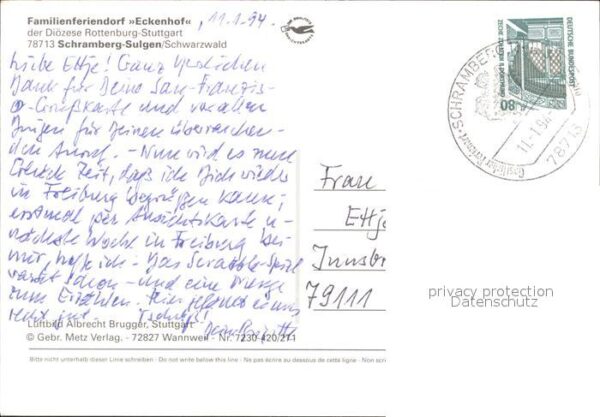 Familienferiendorf »Eckenhof«
der Diözese Rottenburg-Stuttgart
78713 Schramberg-Sulgen/Schwarzwald
11.1.94.
Liebe Ettje! Ganz herzlichen
Dank für Deine San-Franzis-
co-Grußkarte und vor allen
Dingen für Deinen überraschen-
den Anruf. - Nun wird es
Zeit, daß ich Dich wieder
in Freiburg begrüßen kann,
erstmal per Ansichtskarte u-
nächste Woche in Freiburg bei
mir, hoffe ich - Das Scrabble-Spiel
wartet schon - und eine Menge
zum Erzählen. Hier gefällt es uns
recht gut. Tschüß!
Deine Brigitte
Luftbild Albrecht Brugger, Stuttgart
© Gebr. Metz Verlag · 72827 Wannweil · Nr. 7230 420/271
Bitte nicht unterhalb dieser Linie schreiben · Do not write below this line · Ne pas écrire au dessous de cette ligne · Non scri
Frau
Ettje
Innsbr
79111
DEUTSCHE BUNDESPOST
80
SCHRAMBERG
11.-1.94
78713
privacy protection
Datenschutz